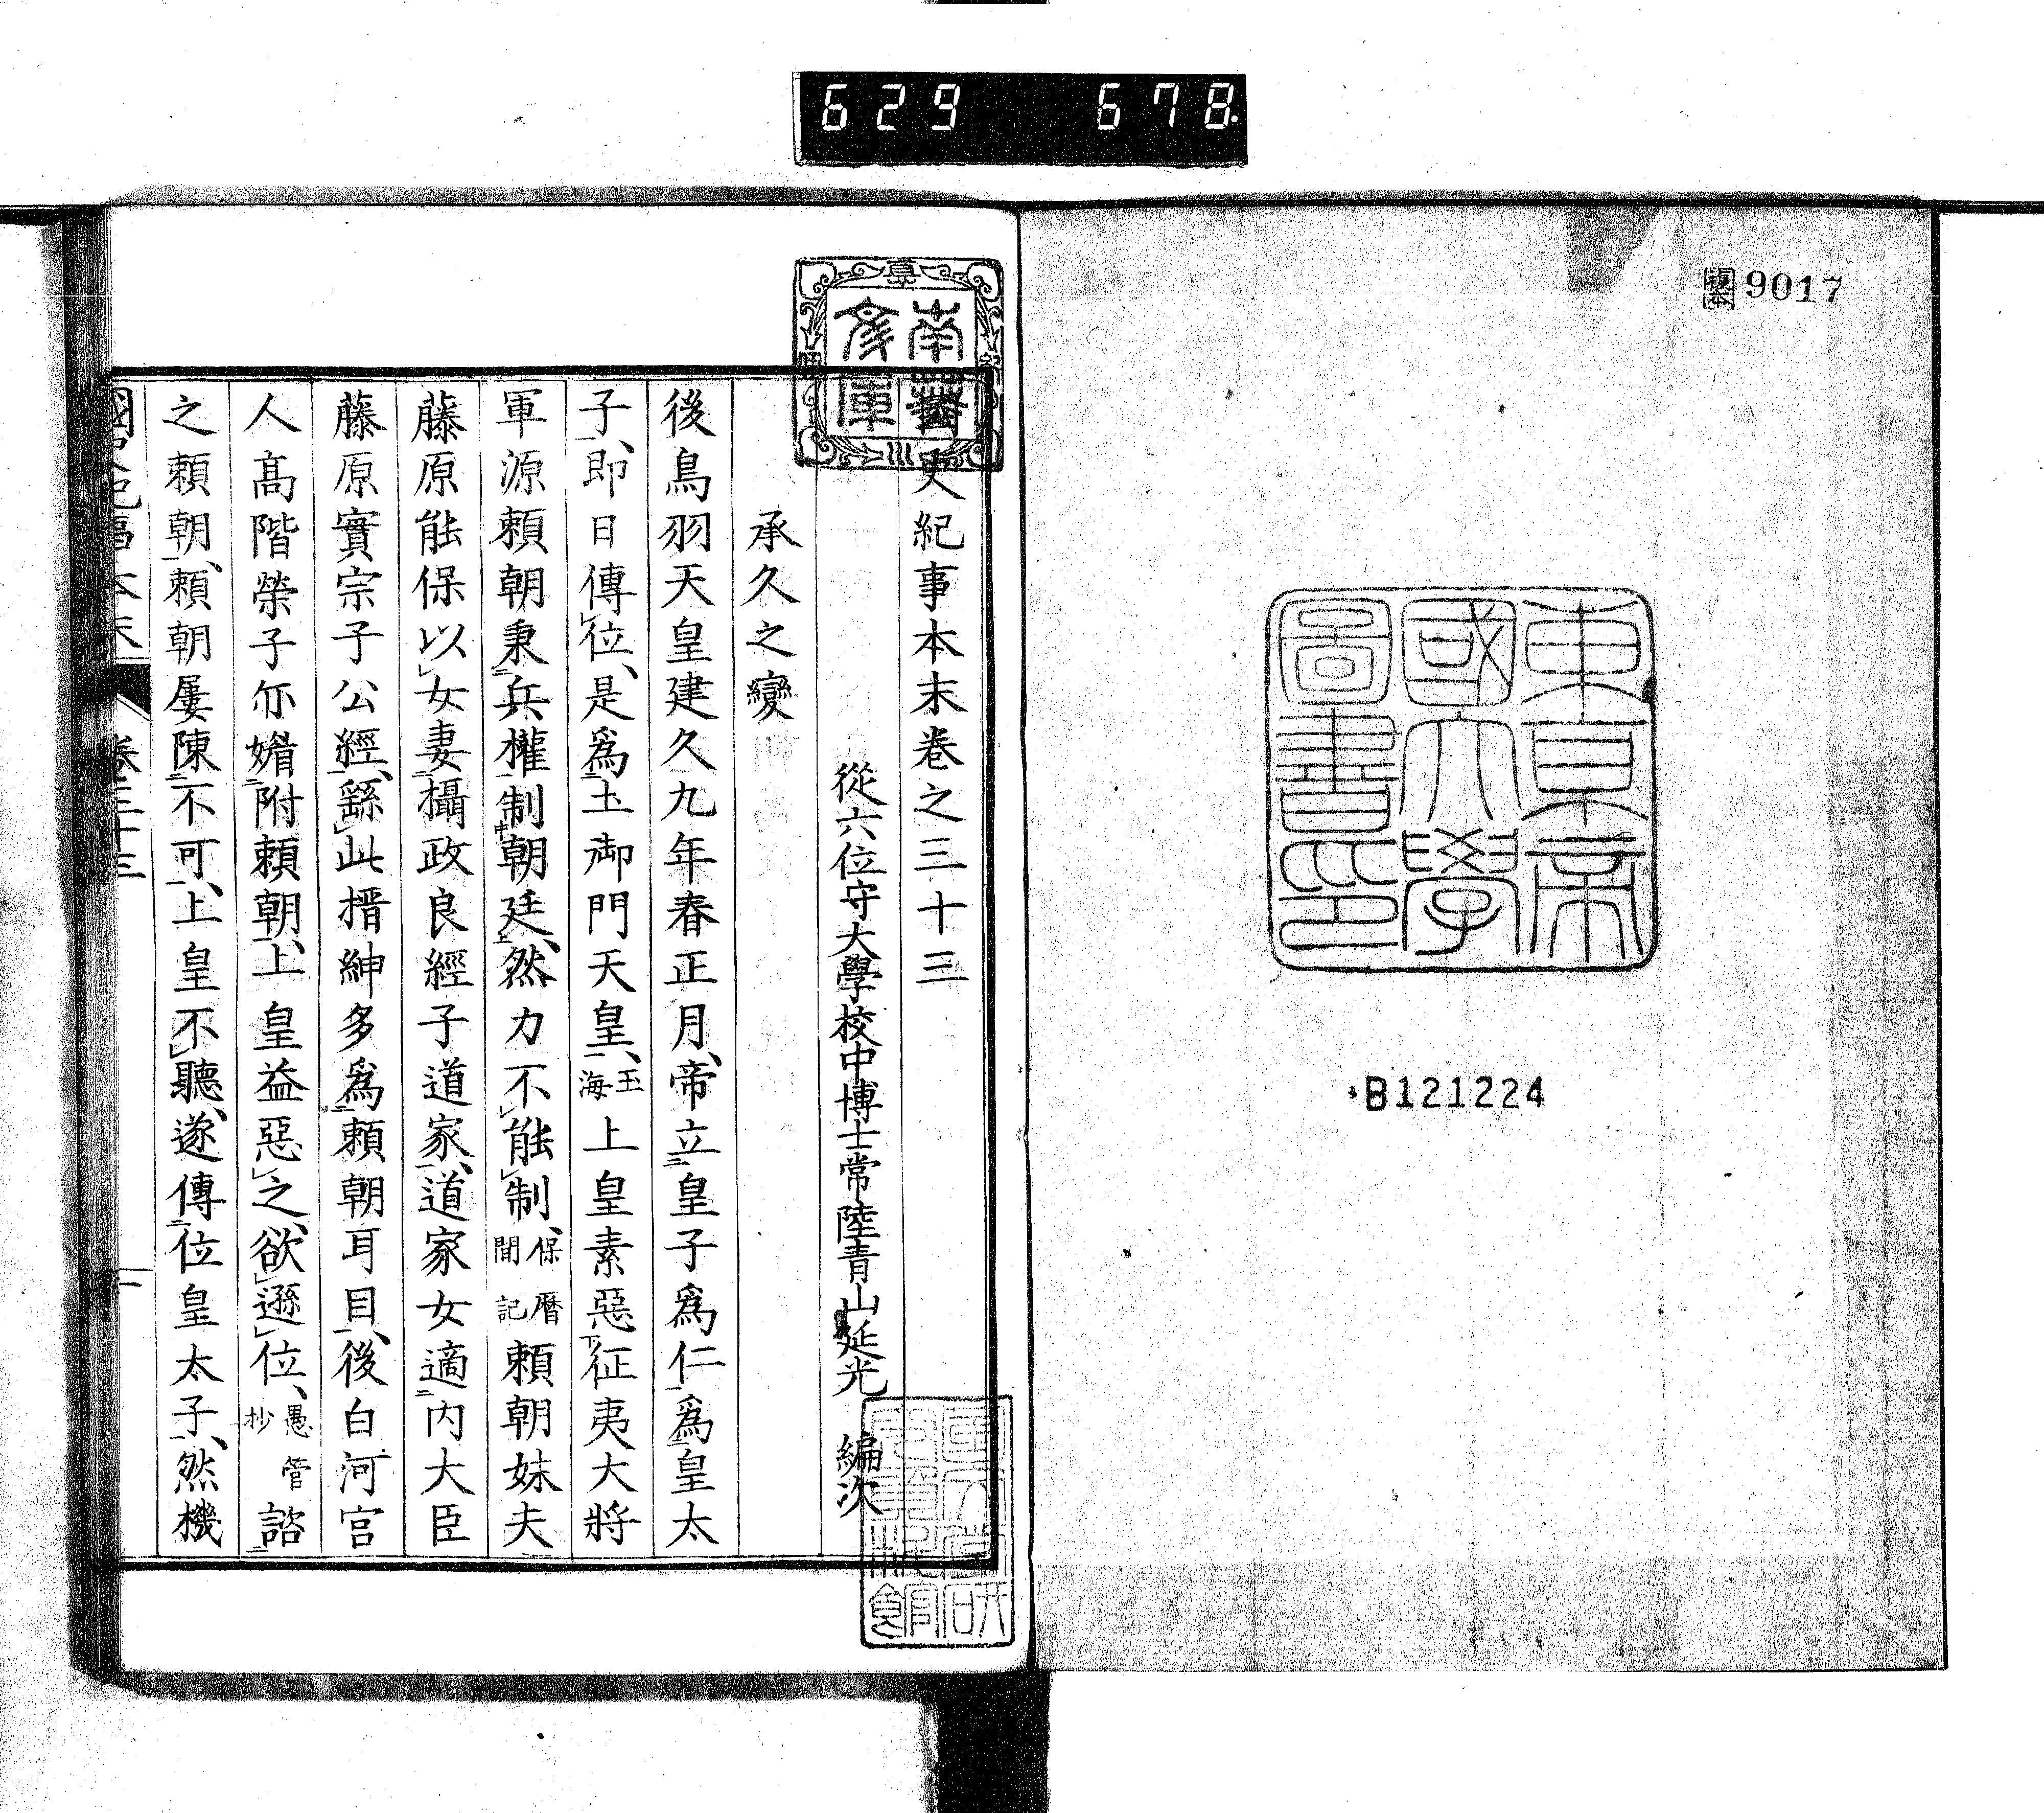 629 678.
複本 9017
東京帝
國大學
圖書印
B121224
南葵
文庫
國史紀事本末卷之三十三
從六位守大學校中博士常陸青山延光 編次
承久之變
後鳥羽天皇建久九年春正月、帝立二皇子爲仁一爲二皇太
子一、即日傳レ位、是爲二土御門天皇一、玉海上皇素惡下征夷大將
軍源頼朝秉二兵權一制中朝廷上、然力不レ能レ制、保曆間記頼朝妹夫
藤原能保以レ女妻二攝政良經子道家一、道家女適二内大臣
藤原實宗子公經一、繇レ此搢紳多爲二頼朝耳目一、後白河宮
人高階榮子亦媚二附頼朝一、上皇益惡レ之、欲レ遜レ位、愚管抄諮二
之頼朝一、頼朝屢陳二不可一、上皇不レ聽、遂傳二位皇太子一、然機
國史紀事本末 卷三十三 一